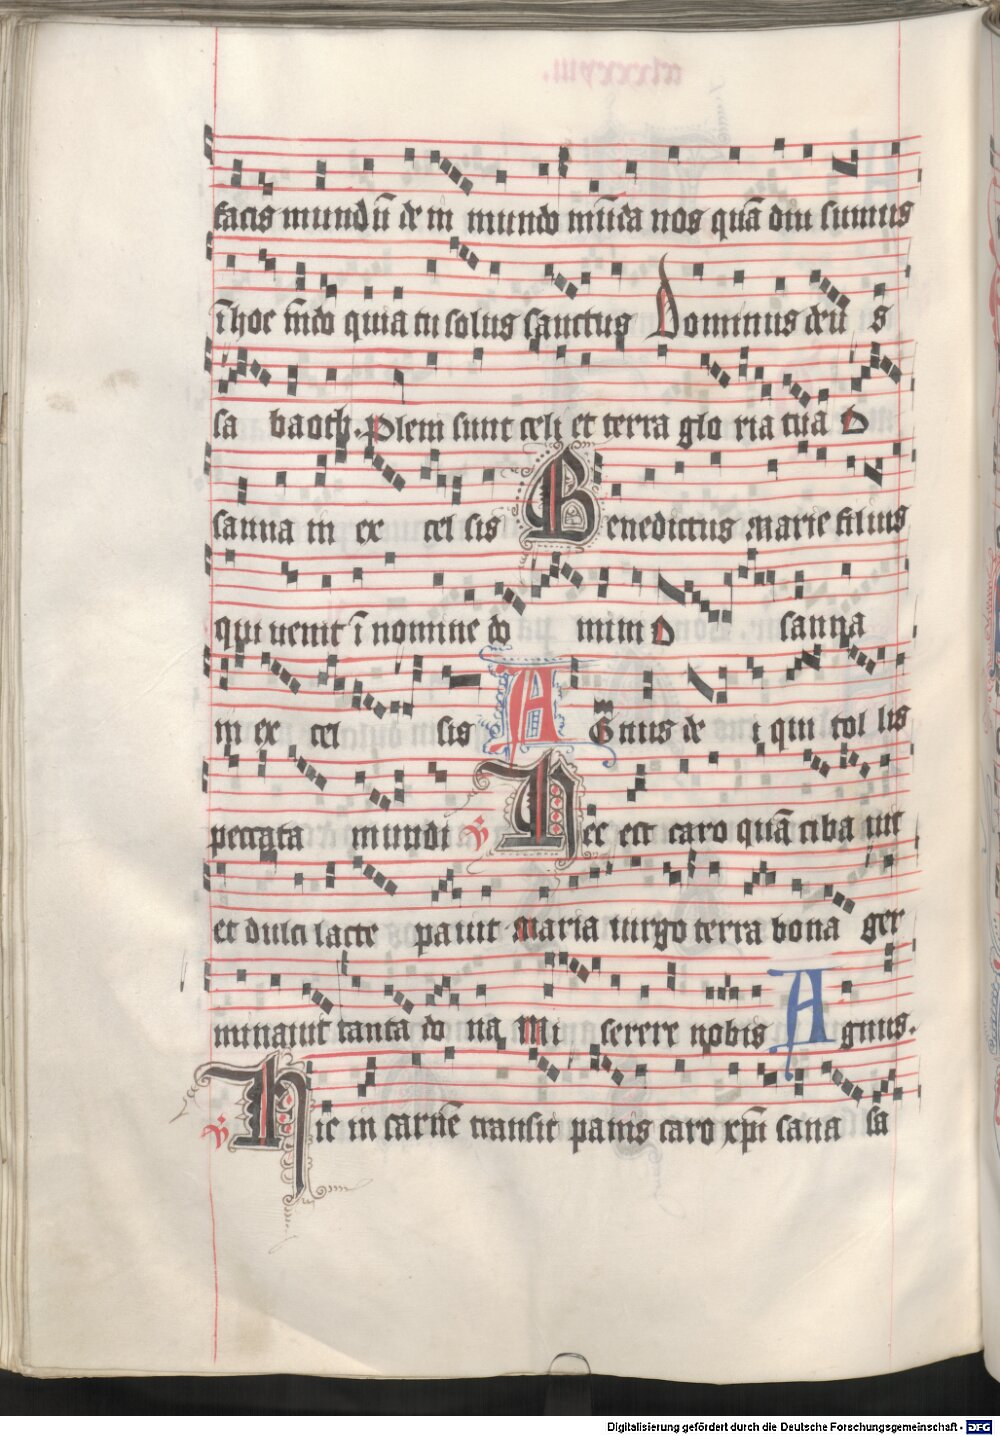 facis mundū de in mundo mūda nos quā diu sumus
ī hoc mūdo quia tu solus sanctus Dominus deu s
sa baoth. Pleni sunt celi et terra glo ria tua O
sanna in ex cel sis Benedictus marie filius
qui uenit ī nomine do mini O sanna
in ex cel sis AGnus de i qui tol lis
peccata mundi V Hec est caro quā ciba uit
et dulci lacte pauit maria uirgo terra bona ger
minauit tanta do na Mi serere nobis Agnus.
V Hic in carnē transit panis caro xp̄i sana sa
Digitalisierung gefördert durch die Deutsche Forschungsgemeinschaft - DFG